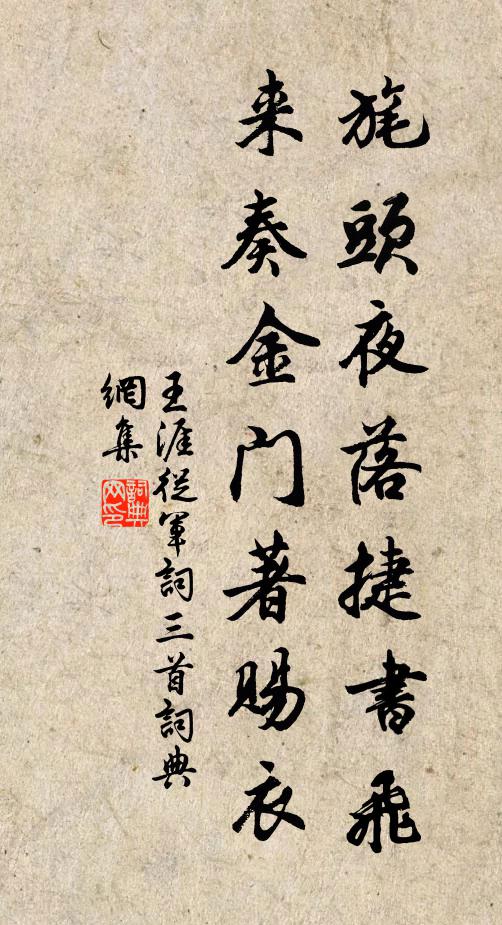 旄頭夜落捷書飛
来奏金門著賜衣
王涯從軍詞三首詞典
網集
詞典网印